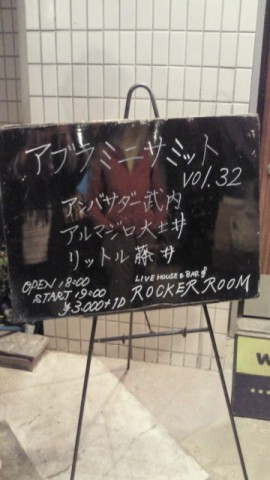 アブラミーサミット
VOL.32
アンバサダー武内
アルマジロ大土井
リットル藤井
OPEN 18:00
START 19:00
¥3,000+1D
LIVE HOUSE & BAR
ROCKER ROOM